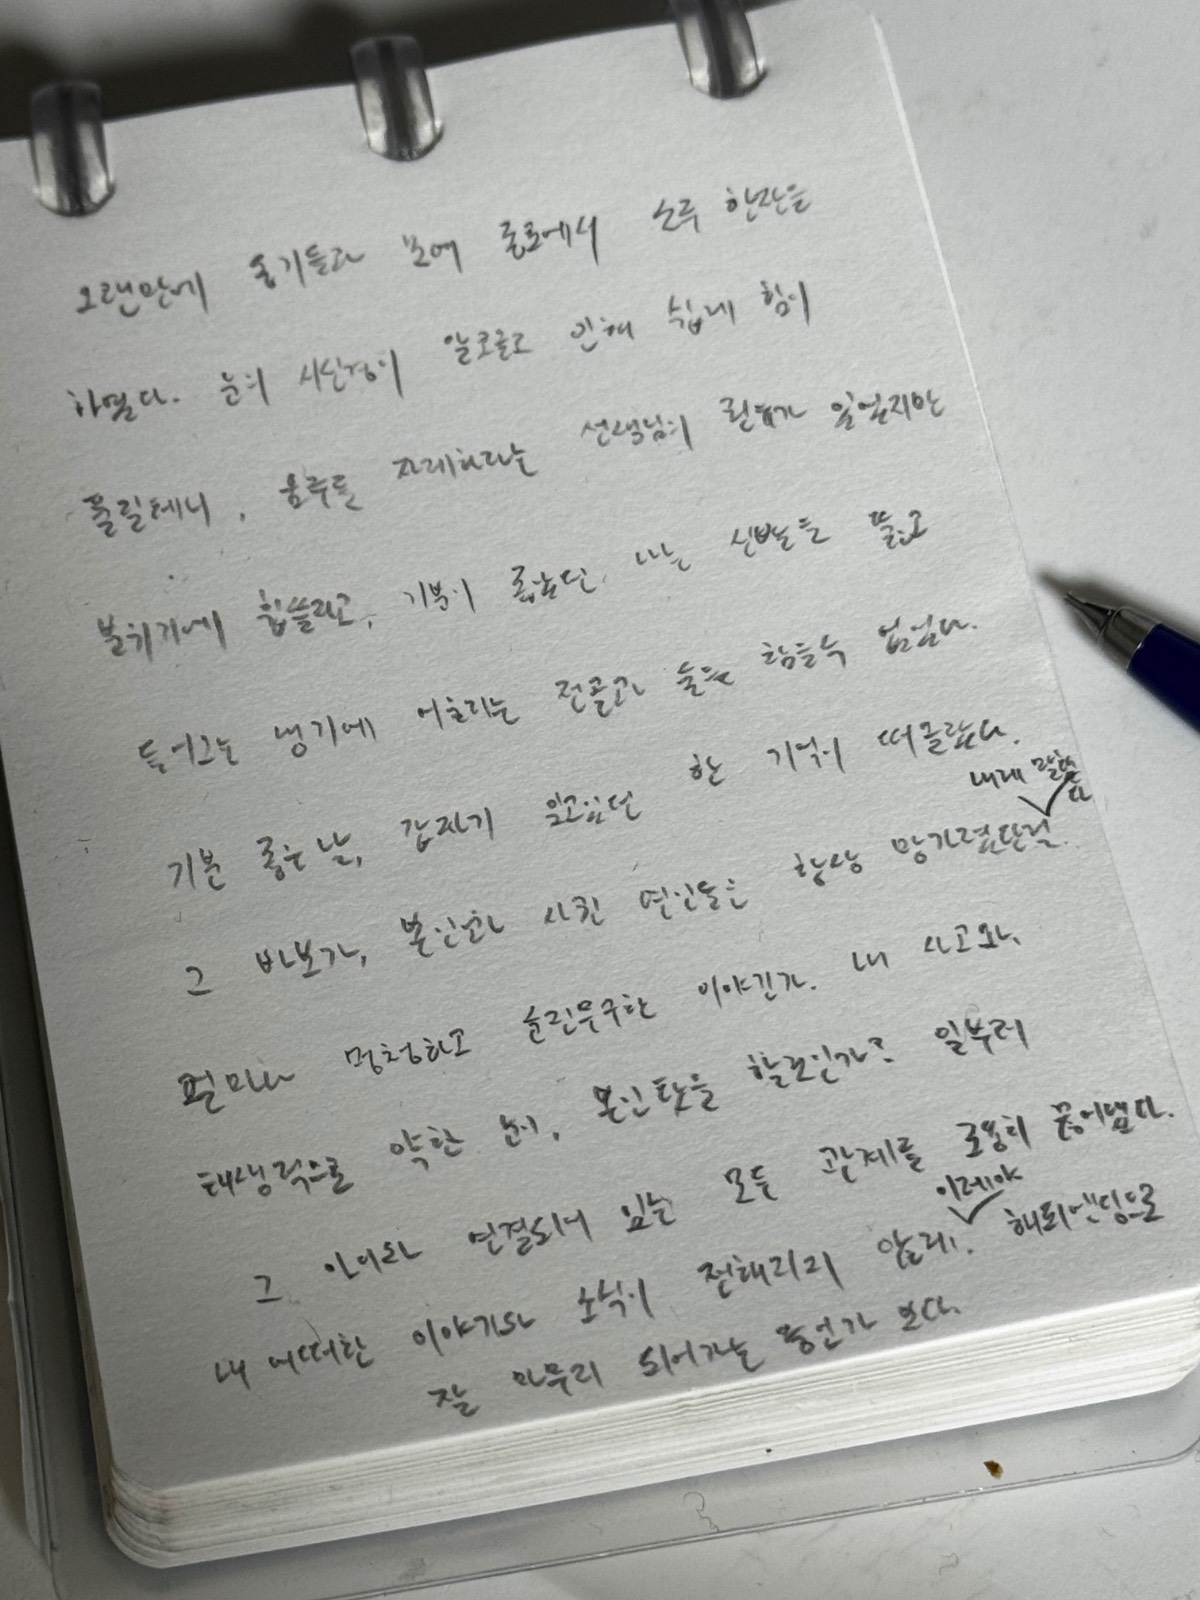 오랜만에 동기들과 모여 종로에서 소주 한잔을
하였다. 눈의 시신경이 알코올로 인해 쉽게 힘이
풀릴테니, 음주를 자제하라는 선생님의 권유가 있었지만
분위기에 휩쓸리고, 기분이 좋았던 나는 신발을 뚫고
들어오는 냉기에 어울리는 전골과 술을 참을수 없었다.
기분 좋은 날, 갑자기 잊고있던 한 기억이 떠올랐다.
내게 말했다
그 바보가, 본인과 사귄 연인들은 항상 망가졌단걸.
얼마나 멍청하고 순진무구한 이야긴가. 내 사고와,
태생적으로 약한 눈이, 본인탓을 할모인가? 일부러
그 아이와 연결되어 있는 모든 관계를 조용히 끊어냈다.
이제야
내 어떠한 이야기와 소식이 전해지지 않게. 해피엔딩으로
잘 마무리 되어가는 중인가 보다.